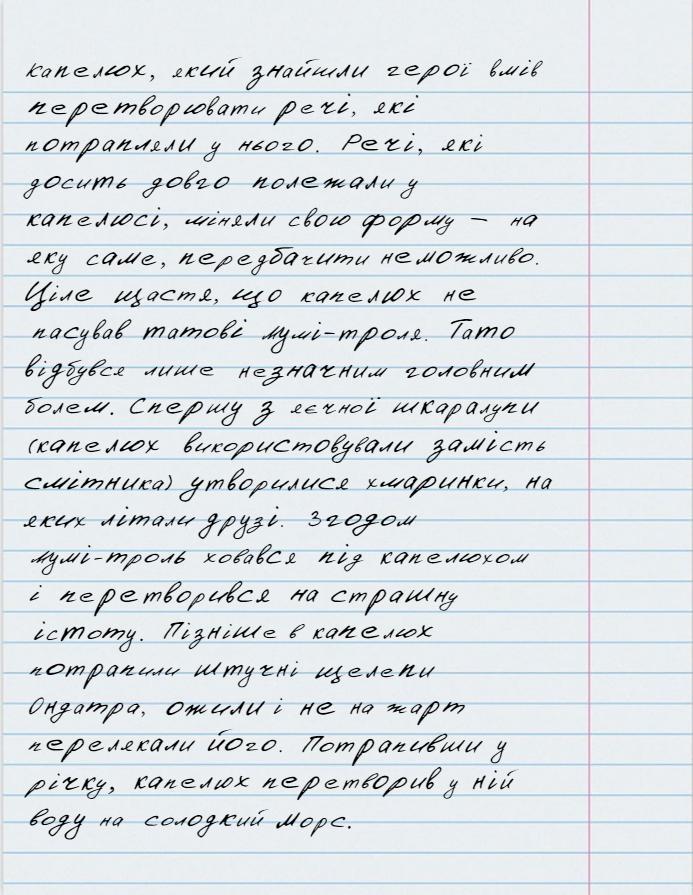 капелюх, який знайшли герої вмів
перетворювати речі, які
потрапляли у нього. Речі, які
досить довго полежали у
капелюсі, міняли свою форму – на
яку саме, передбачити неможливо.
Ціле щастя, що капелюх не
пасував татові мумі-троля. Тато
відбувся лише незначним головним
болем. Спершу з яєчної шкаралупи
(капелюх використовували замість
смітника) утворилися хмаринки, на
яких літали друзі. Згодом
мумі-троль ховався під капелюхом
і перетворився на страшну
істоту. Пізніше в капелюх
потрапили штучні щелепи
Ондатра, ожили і не на жарт
перелякали його. Потрапивши у
річку, капелюх перетворив у ній
воду на солодкий морс.